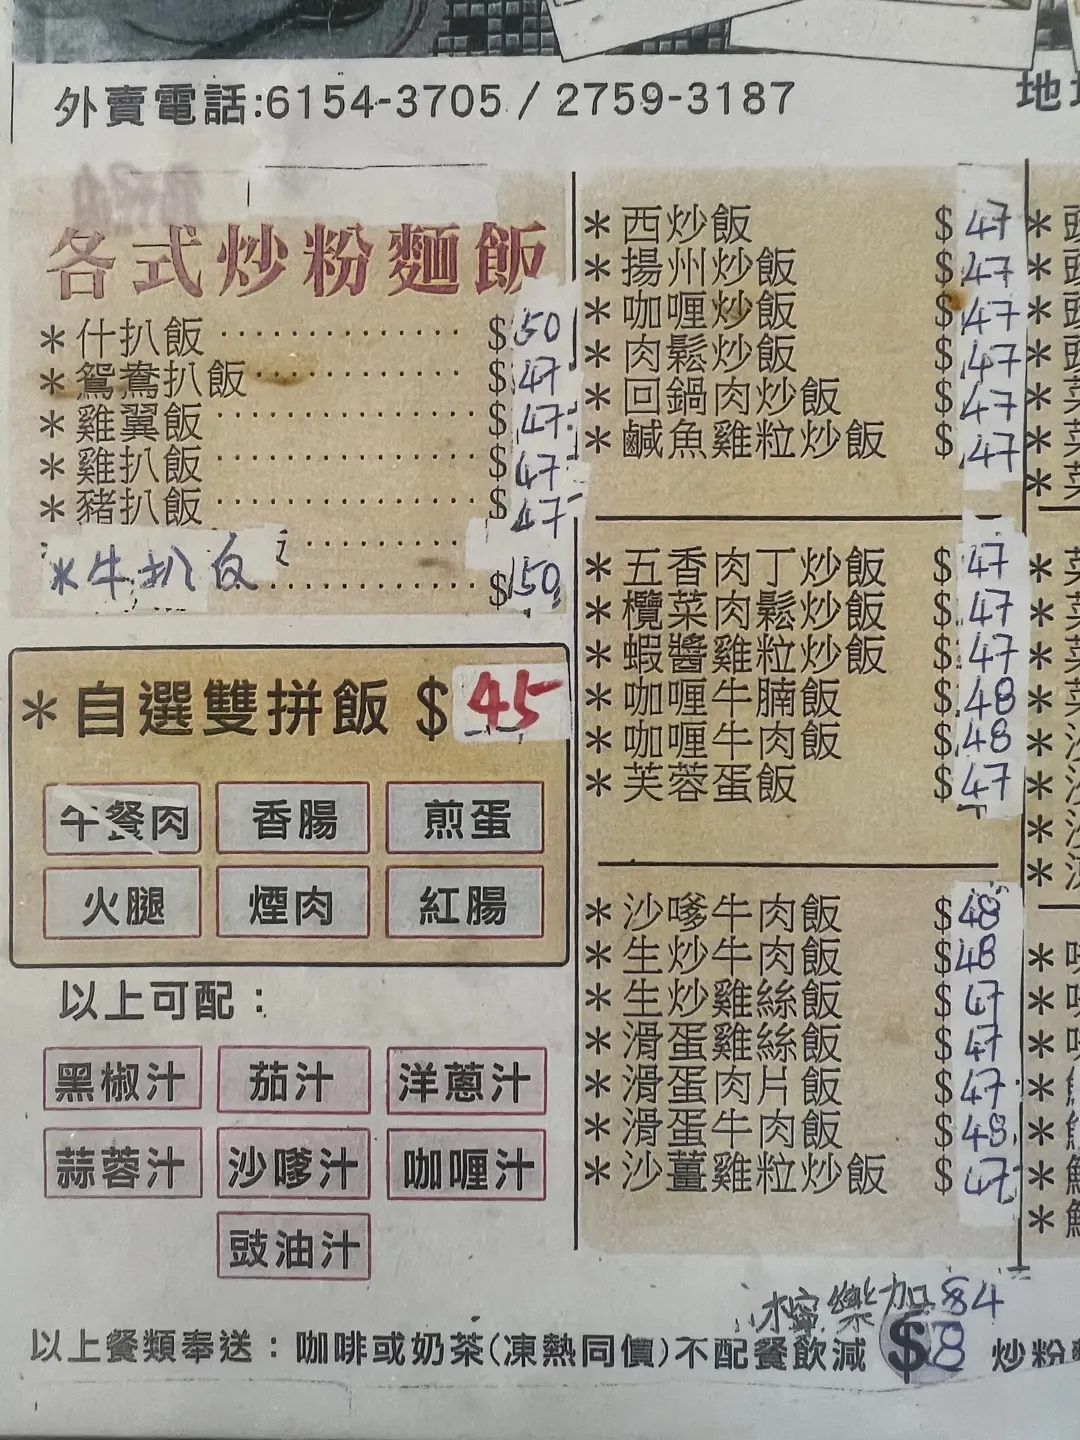 外賣電話:6154-3705 / 2759-3187
地
各式炒粉麵飯
*什扒飯 $50
*鴛鴦扒飯 $47
*雞翼飯 $47
*雞扒飯 $47
*豬扒飯 $47
*牛扒飯 $50
*自選雙拼飯 $45
午餐肉 香腸 煎蛋
火腿 煙肉 紅腸
以上可配：
黑椒汁 茄汁 洋蔥汁
蒜蓉汁 沙嗲汁 咖喱汁
豉油汁
*西炒飯 $47
*揚州炒飯 $47
*咖喱炒飯 $47
*肉鬆炒飯 $47
*回鍋肉炒飯 $47
*鹹魚雞粒炒飯 $47
*五香肉丁炒飯 $47
*欖菜肉鬆炒飯 $47
*蝦醬雞粒炒飯 $47
*咖喱牛腩飯 $48
*咖喱牛肉飯 $48
*芙蓉蛋飯 $47
*沙嗲牛肉飯 $48
*生炒牛肉飯 $48
*生炒雞絲飯 $47
*滑蛋雞絲飯 $47
*滑蛋肉片飯 $47
*滑蛋牛肉飯 $48
*沙薑雞粒炒飯 $47
檸樂加$4
以上餐類奉送：咖啡或奶茶(凍熱同價)不配餐飲減$8
炒粉